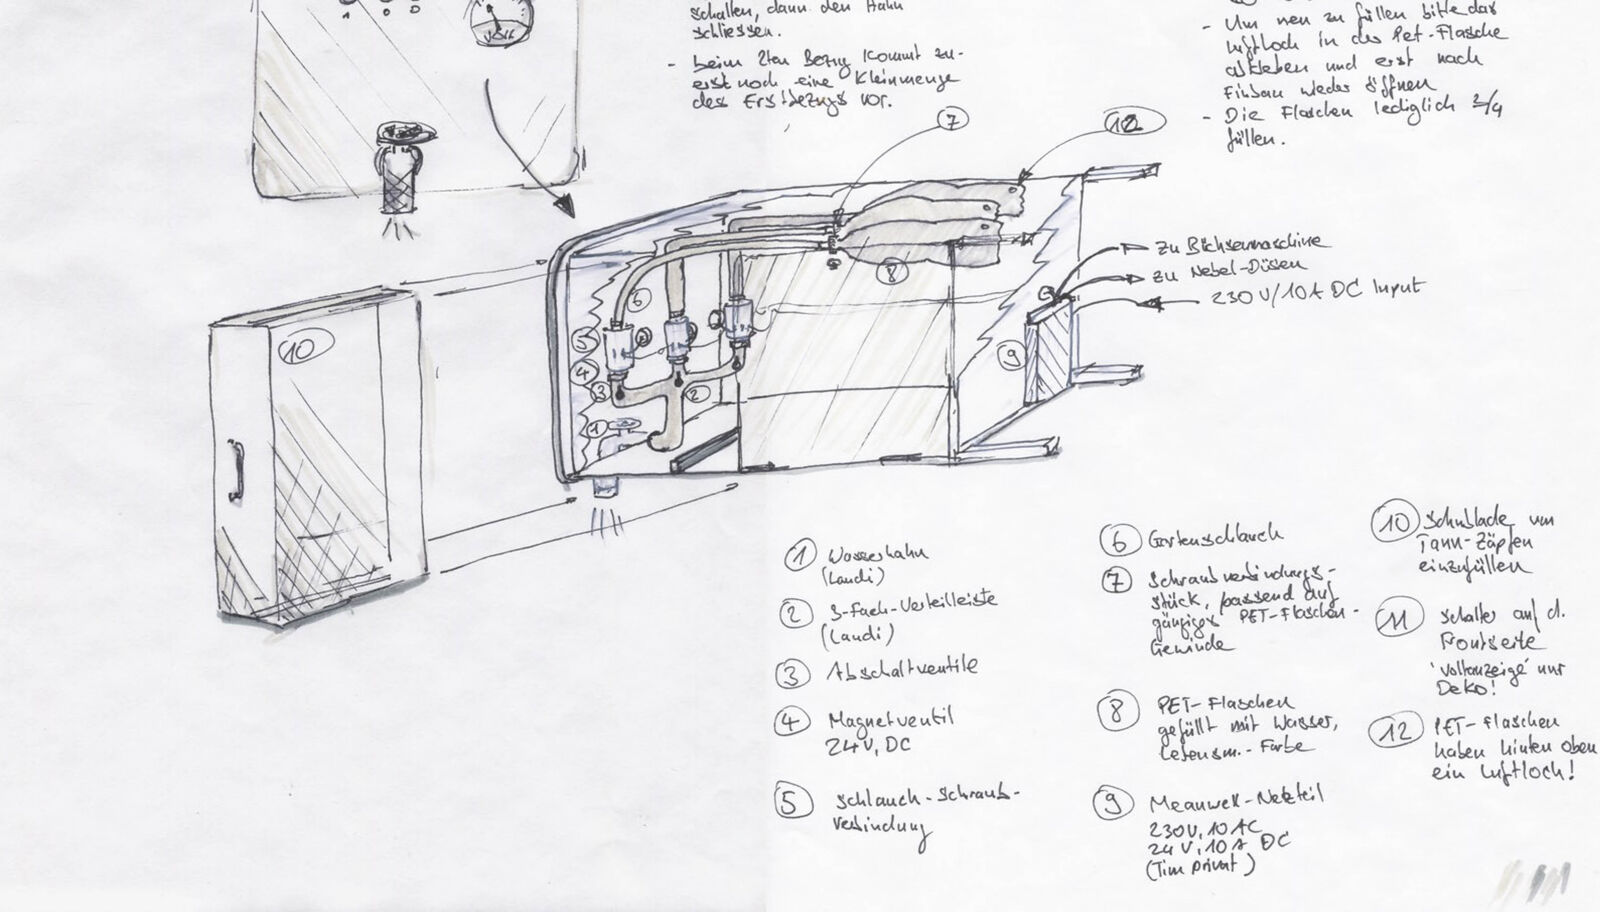 schalten, dann den Hahn
schliessen.
- beim 2ten Bezug kommt zu-
erst noch eine Kleinmenge
des Erstbezugs vor.
- Um neu zu füllen bitte das
Luftloch in der Pet-Flasche
abkleben und erst nach
Einbau wieder öffnen
- Die Flaschen lediglich 3/4
füllen.
VOLT
7
12
zu Büchsenmaschine
zu Nebel-Düsen
230V/10A DC Input
10
6
8
5
4
3
2
1
9
1 Wasserhahn
(Landi)
2 3-Fach-Verteilleiste
(Landi)
3 Abschaltventile
4 Magnetventil
24V, DC
5 Schlauch-Schraub-
verbindung
6 Gartenschlauch
7 Schraubverbindungs-
stück, passend auf
gängiges PET-Flaschen-
Gewinde
8 PET-Flaschen
gefüllt mit Wasser,
Lebensm.-Farbe
9 Meanwell-Netzteil
230V, 10 AC
24V, 10A DC
(Tim privat)
10 Schublade um
Tann-Zäpfen
einzufüllen
11 Schalter auf d.
Frontseite
'Voltanzeige' nur
Deko!
12 PET-Flaschen
haben hinten oben
ein Luftloch!